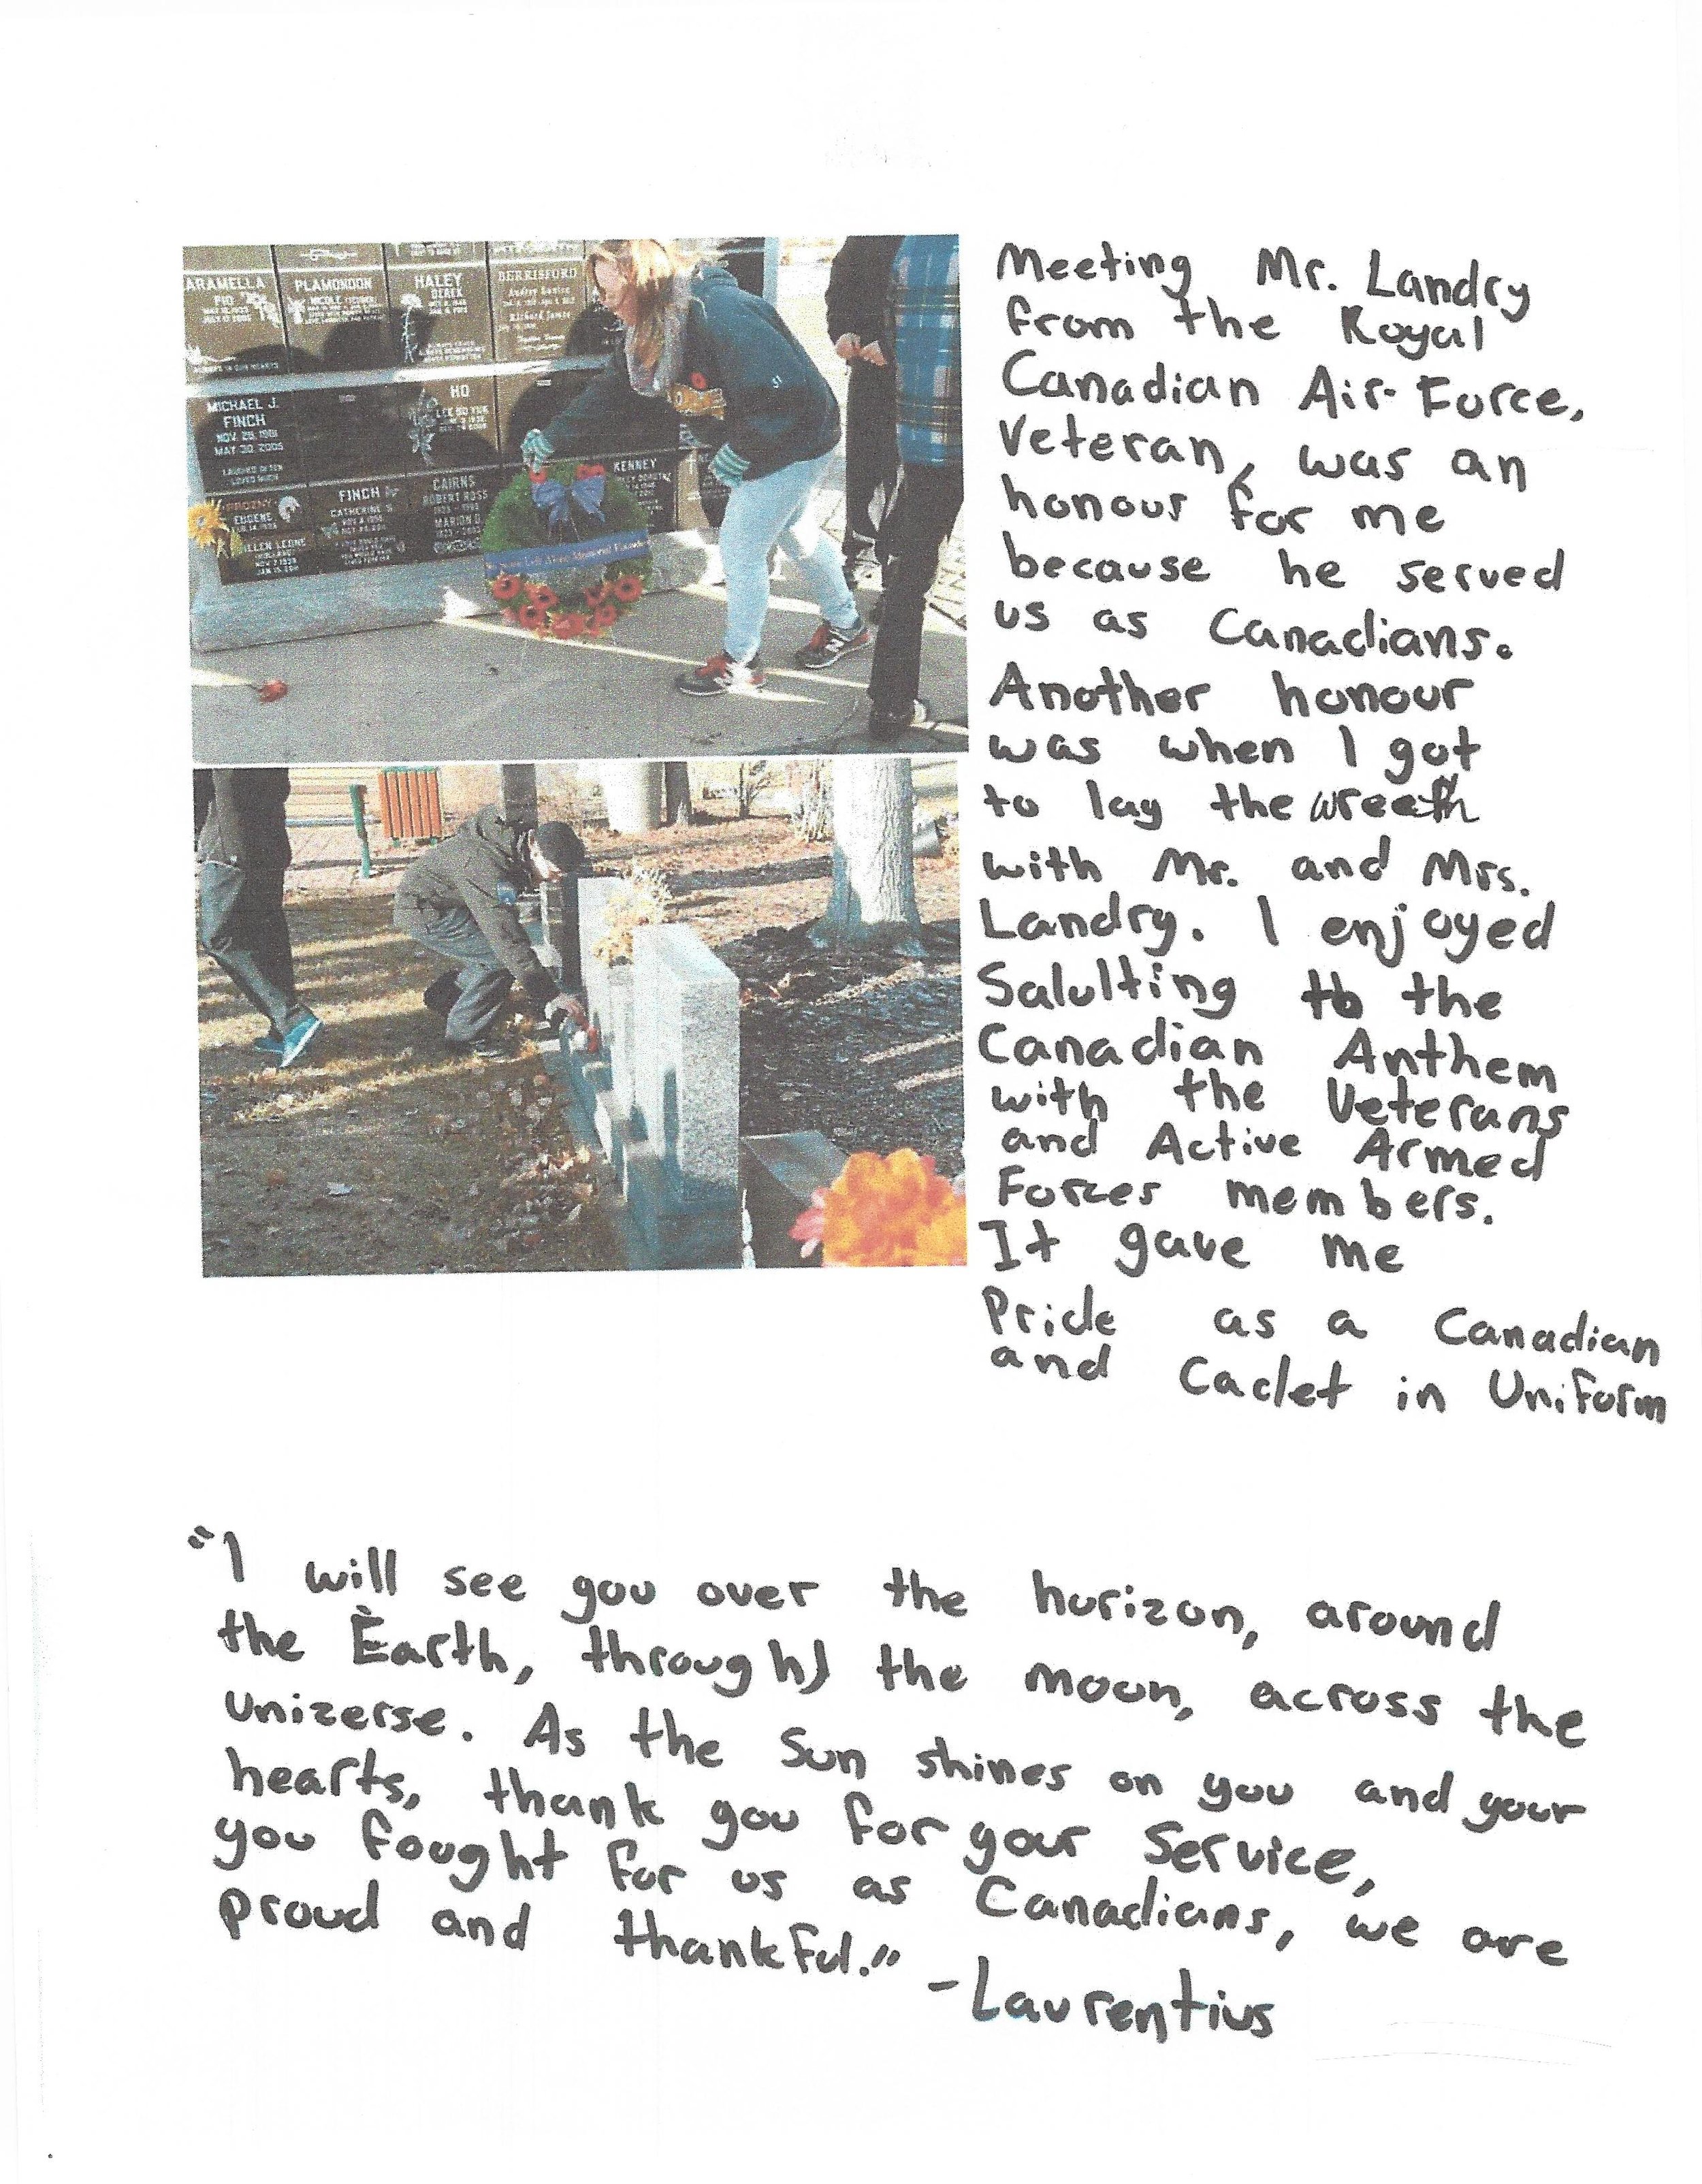 ARAMELLA
PIO
PLAMONDON
HALEY
DEREK
BERRISFORD
MICHAEL J.
FINCH
NOV. 29, 1981
MAY 30, 2005
LAUGHED OFTEN
LOVED MUCH
HO
EUGENE
FINCH
CATHERINE S.
CAIRNS
ROBERT ROSS
MARION D.
KENNEY
Meeting Mr. Landry
from the Royal
Canadian Air Force,
Veteran, was an
honour for me
because he served
us as Canadians.
Another honour
was when I got
to lay the wreath
with Mr. and Mrs.
Landry. I enjoyed
Salulting to the
Canadian Anthem
with the Veterans
and Active Armed
Forces members.
It gave me
Pride as a Canadian
and Cadet in Uniform
"I will see you over the horizon, around
the Earth, through the moon, across the
Unizerse. As the Sun shines on you and your
hearts, thank you for your Service,
you fought for us as Canadians, we are
proud and thankful." -Laurentius